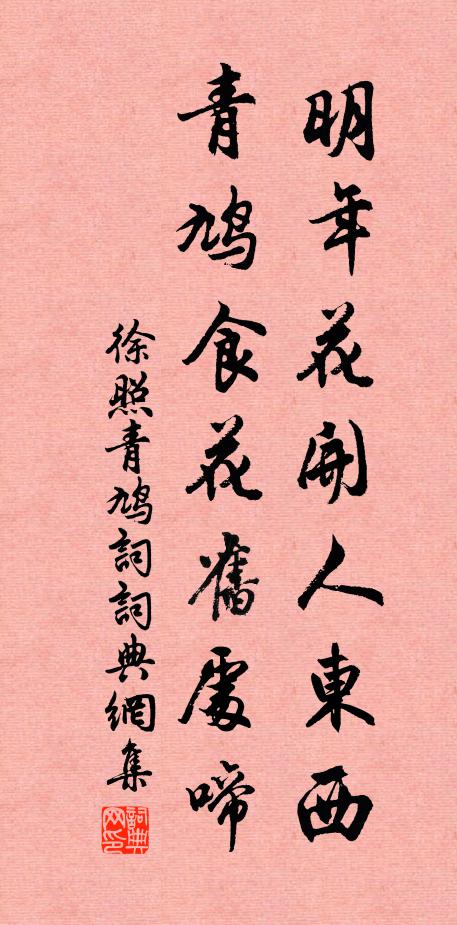 明年花開人東西
青鳩食花舊處啼
徐照青鳩詞詞典網集
詞典网印